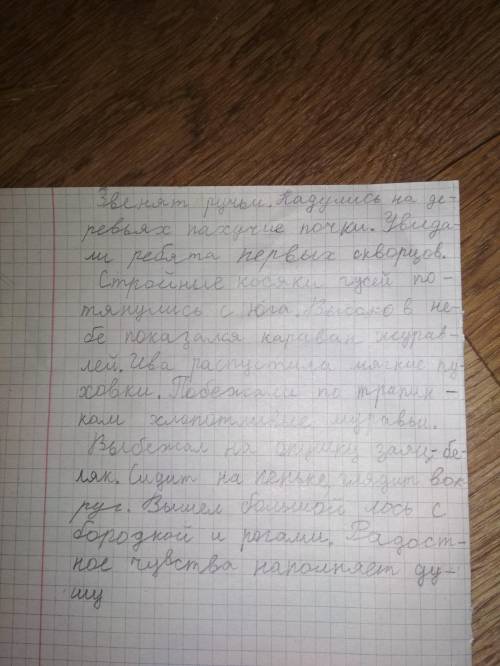 Звенят ручьи. Надулись на де-
ревьях пахучие почки. Увида-
ли ребята первых скворцов.
Стройные косяки гусей по-
тянулись с юга. Высоко в не-
бе показался караван журав-
лей. Ива распустила мягкие пу-
ховки. Побежали по тропин-
кам хлопотливые муравьи.
Выбежал на опушку заяц-бе-
ляк. Сидит на пеньке, глядит вок
руг. Вышел большой лось с
бородкой и рогами. Радост-
ное чувства наполняет ду-
шу